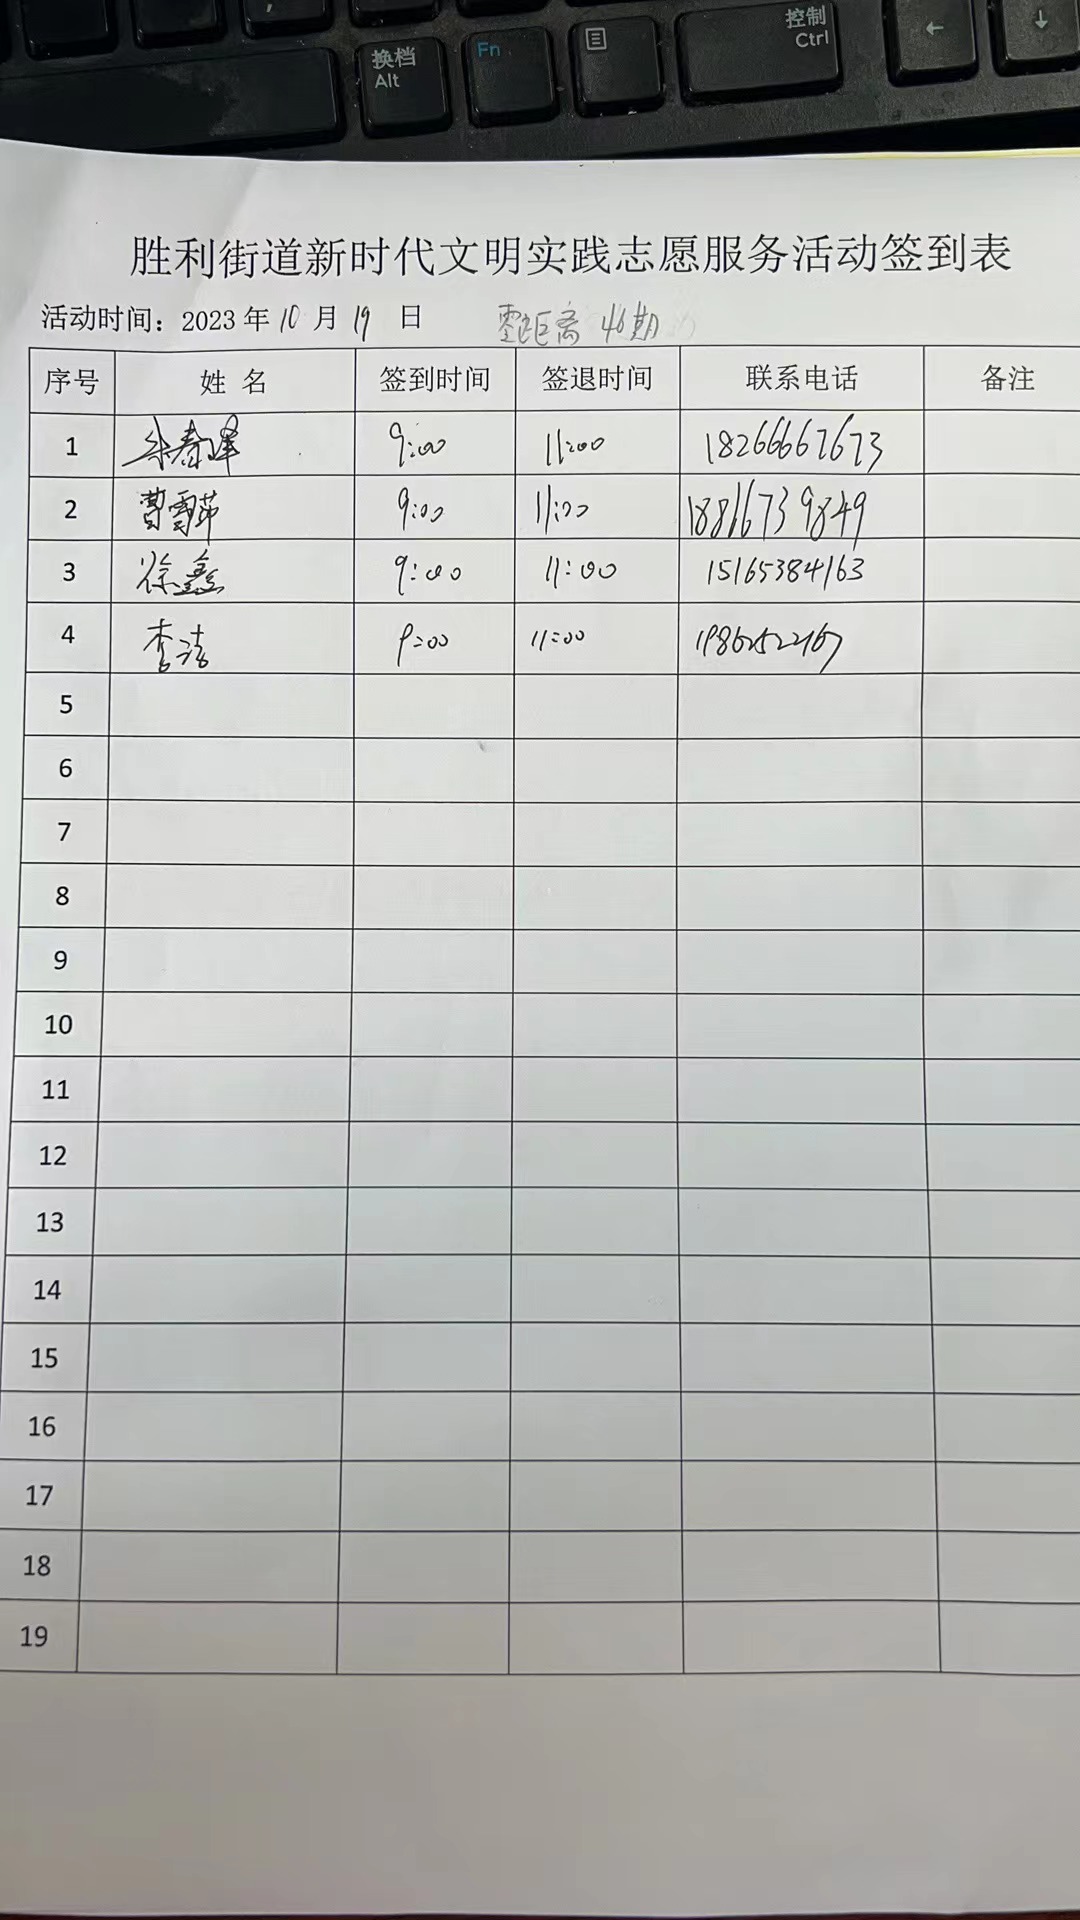 换档
Alt
Fn
控制
Ctrl
←
↓
胜利街道新时代文明实践志愿服务活动签到表
活动时间：2023 年 10 月 19 日 零距离 46期
序号 姓 名 签到时间 签退时间 联系电话 备注
1 9:00 11:00 18266667673
2 曹雪茆 9:00 11:00 18816739849
3 徐鑫 9:00 11:00 15165384163
4 李洁 9:00 11:00
5
6
7
8
9
10
11
12
13
14
15
16
17
18
19